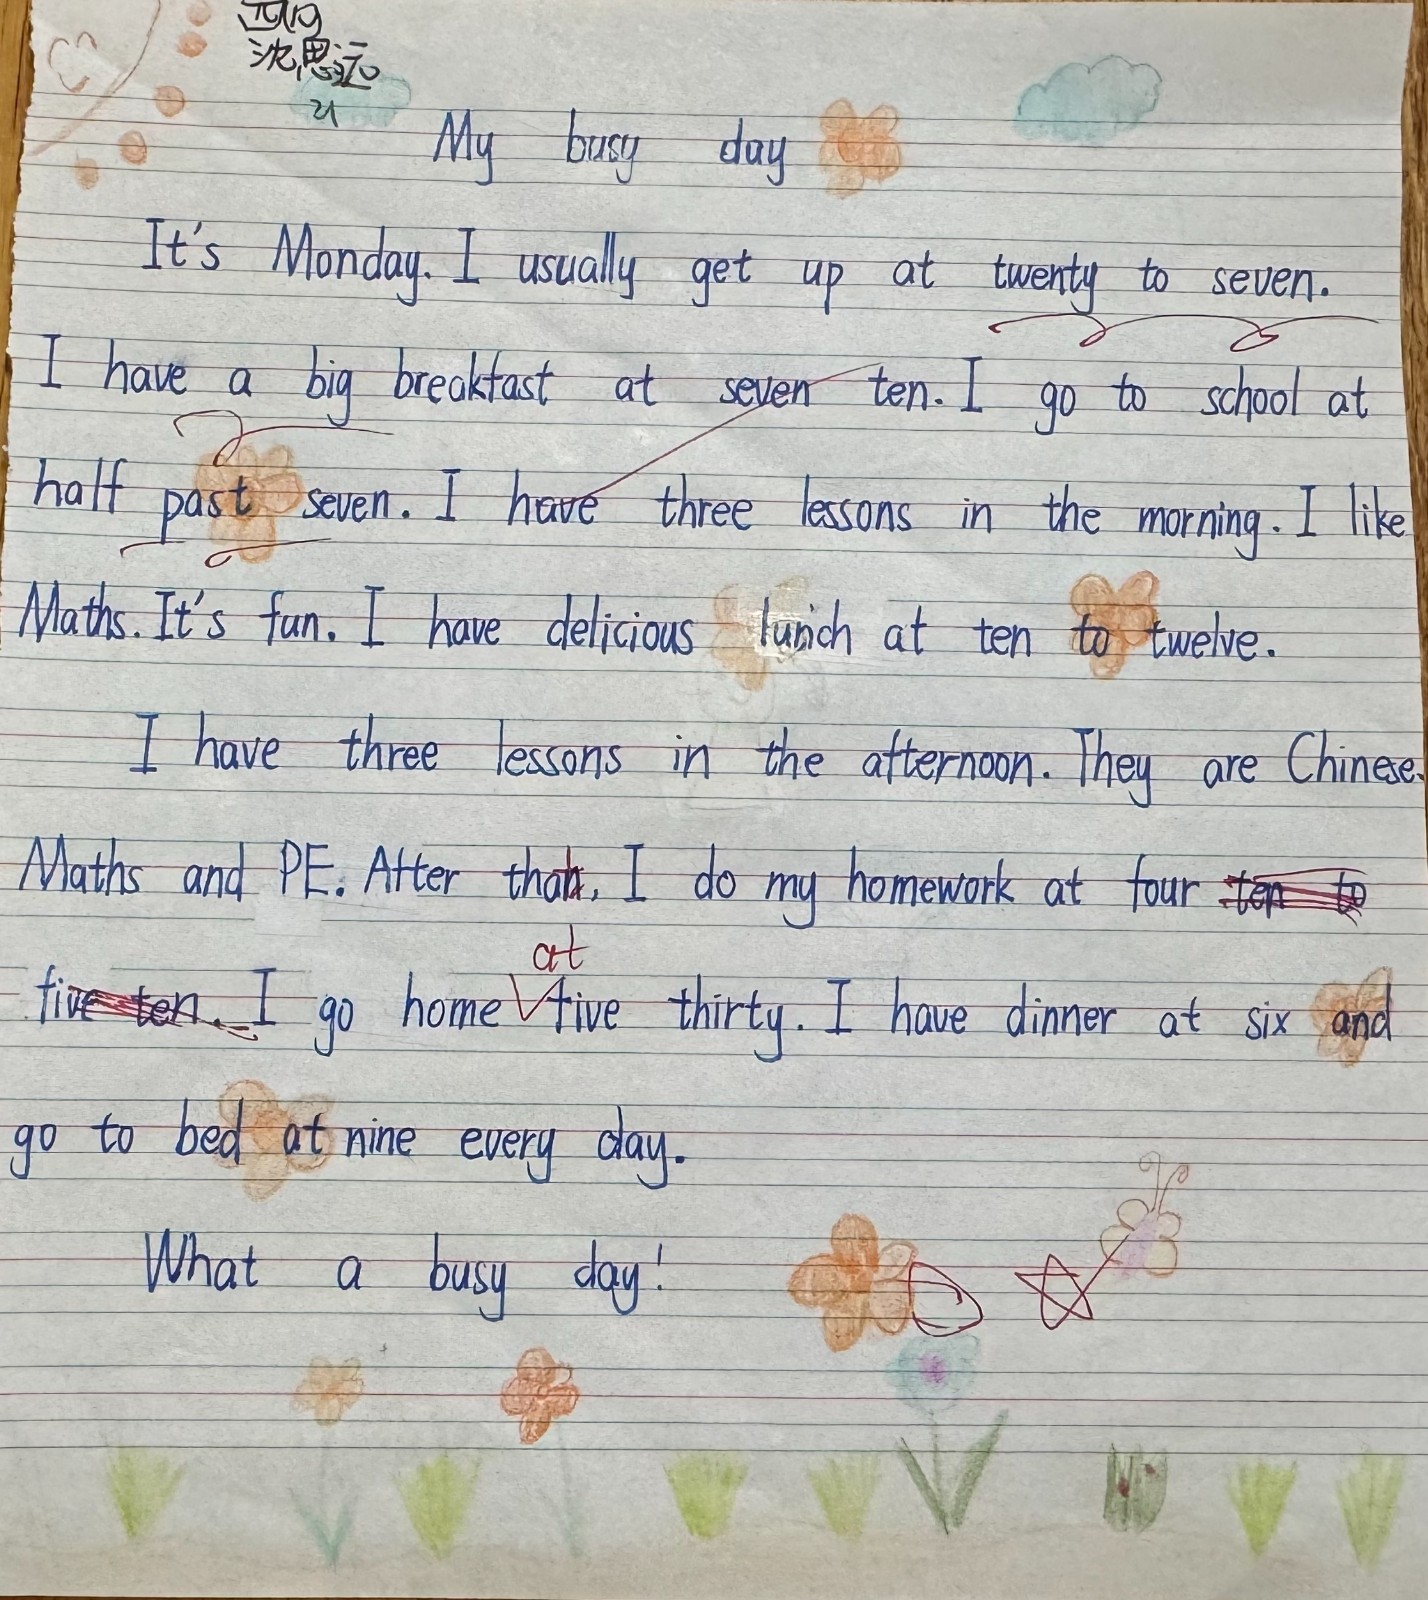 四(1)
沈思远
21
My busy day
It's Monday. I usually get up at twenty to seven.
I have a big breakfast at seven ten. I go to school at
half past seven. I have three lessons in the morning. I like
Maths. It's fun. I have delicious lunch at ten to twelve.
I have three lessons in the afternoon. They are Chinese.
Maths and PE. After that, I do my homework at four ten to
at
five ten. I go home five thirty. I have dinner at six and
go to bed at nine every day.
What a busy day!